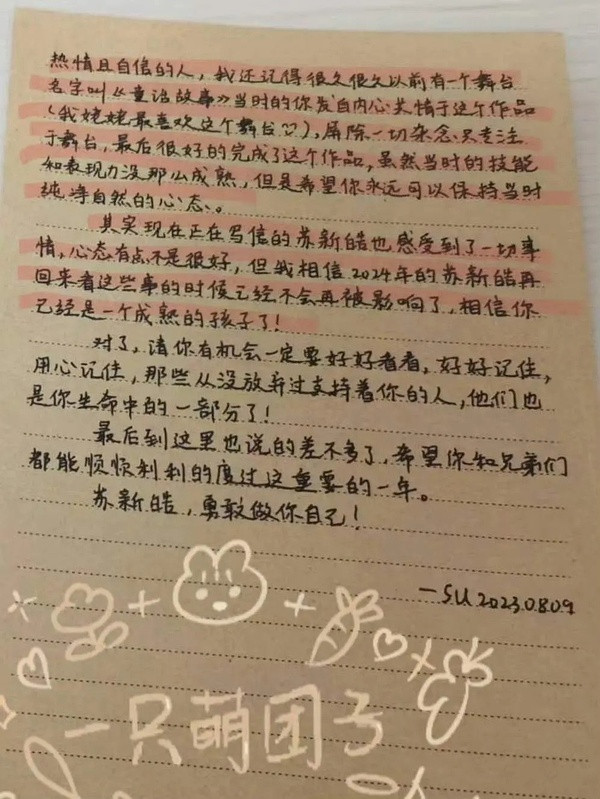 热情且自信的人，我还记得很久很久以前有一个舞台
名字叫《童话故事》当时的你发自内心共情于这个作品
(我姥姥最喜欢这个舞台♡)，屏除一切杂念只专注
于舞台，最后很好的完成了这个作品，虽然当时的技能
和表现力没那么成熟，但是希望你永远可以保持当时
纯净自然的心态。
其实现在正在写信的苏新皓也感受到了一切事
情，心态有点不是很好，但我相信2024年的苏新皓再
回来看这些事的时候已经不会再被影响了，相信你
已经是一个成熟的孩子了！
对了，请你有机会一定要好好看看，好好记住，
用心记住，那些从没放弃过支持着你的人，他们也
是你生命中的一部分了！
最后到这里也说的差不多了，希望你和兄弟们
都能顺顺利利的度过这重要的一年。
苏新皓，勇敢做你自己！
—SU 2023.08.09
一只萌团子